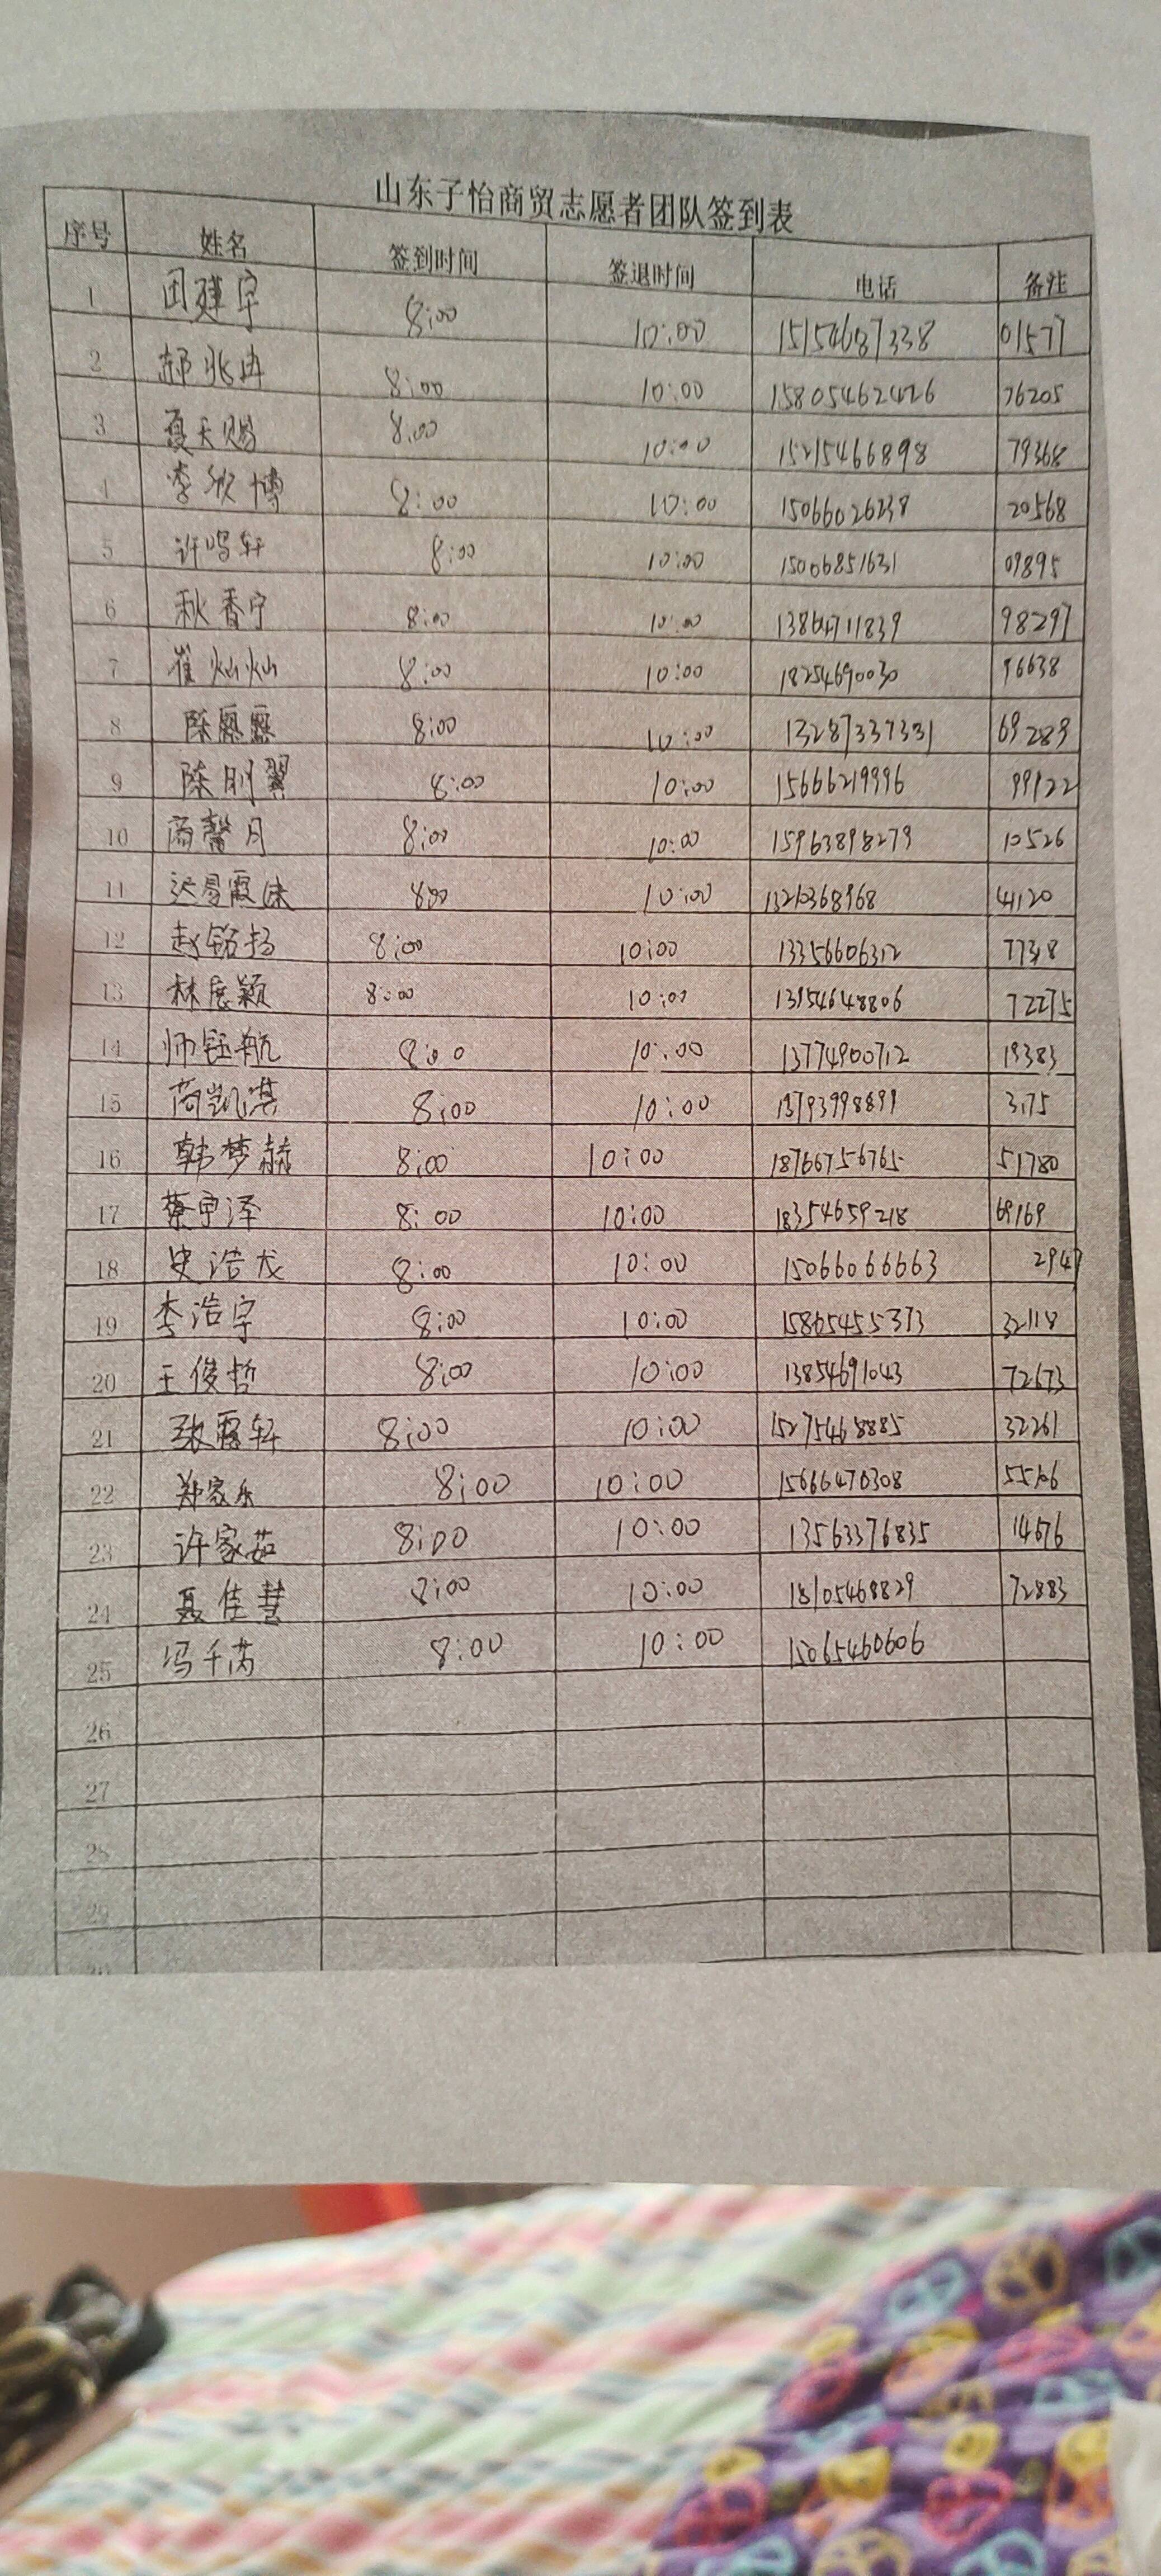 山东子怡商贸志愿者团队签到表
序号 姓名 签到时间 签退时间 电话 备注
1 田建宇 8:00 10:00 15154687338 01577
2 郝兆冉 8:00 10:00 15805462426 76205
3 夏天赐 8:00 10:00 15215466898 79368
4 李欣博 8:00 10:00 15066026238 20568
5 许鸣轩 8:00 10:00 15006851631 09895
6 秋香宁 8:00 10:00 13864711839 98297
7 崔灿灿 8:00 10:00 18254690030 96638
8 8:00 10:00 13287337331 69289
9 陈刚翼 8:00 10:00 15666219996 99122
10 商馨月 8:00 10:00 15963898279 10526
11 8:00 10:00 44120
12 赵铭扬 8:00 10:00 13356606312
13 林展颖 8:00 10:00 13154648806 72275
14 师钰航 8:00 10:00 13774900712 19383
15 商凯淇 8:00 10:00 13793998899 3175
16 韩梦赫 8:00 10:00 18766756765 51780
17 蔡宇泽 8:00 10:00 18354659218 69169
18 史浩龙 8:00 10:00 15066066663 2947
19 李浩宇 8:00 10:00 15865455373 32118
20 王俊哲 8:00 10:00 13854691043 72673
21 8:00 10:00 15275468885 32261
22 郑家乐 8:00 10:00 15666470308
23 许家茹 8:00 10:00 13563376835 14676
24 聂佳慧 8:00 10:00 18105468829 72883
25 冯千芮 8:00 10:00 15065460606
26
27
28
29